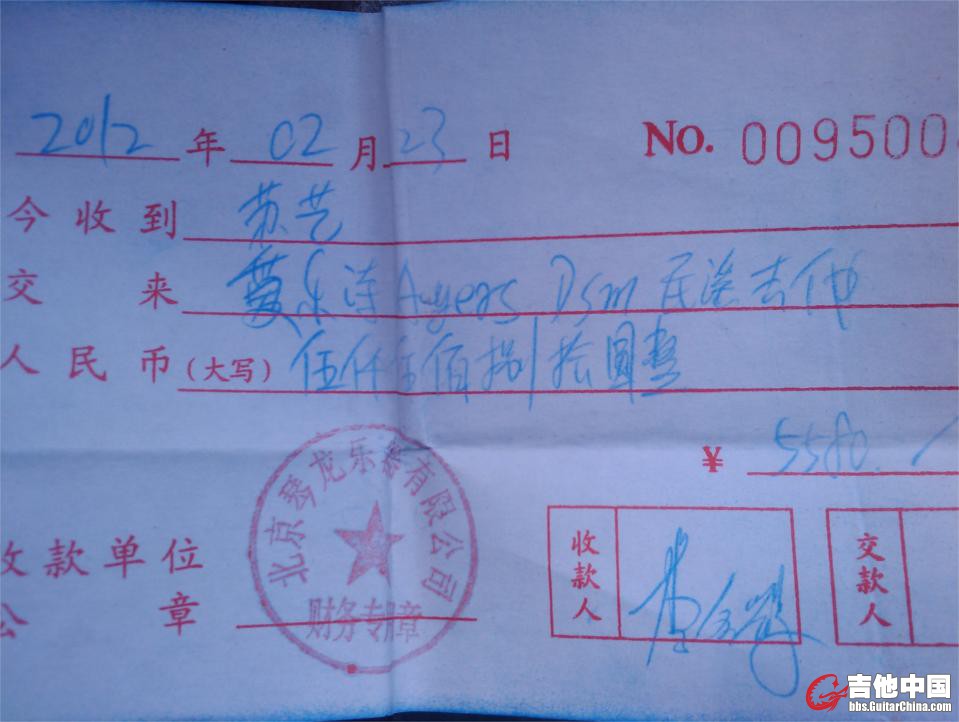 2012 年 02 月 23 日 No. 009500
今 收 到 苏艺
交 来 爱乐诗 Ayers Dsm 民谣吉他
人 民 币 (大写) 伍仟伍佰捌拾圆整
¥ 5580.
北京琴龙乐器有限公司
财务专用章
收款单位
公 章
收款人
交款人
吉他中国
bbs.GuitarChina.com